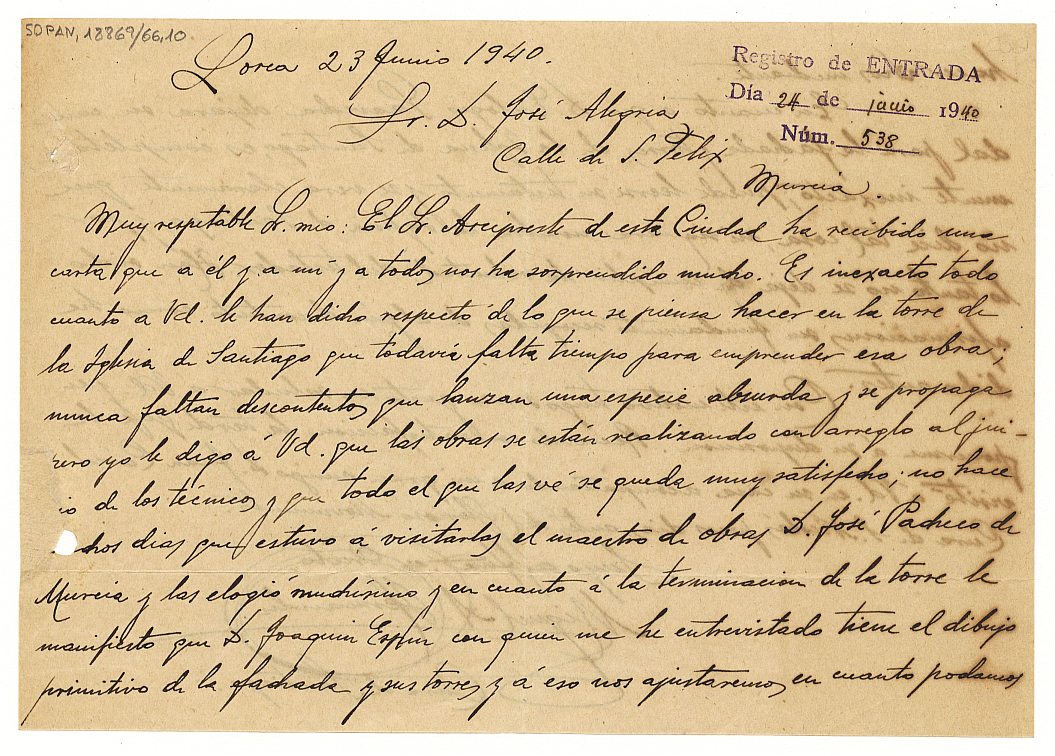 SOPAN, 18869/66,10
Lorca 23 Junio 1940.
Registro de ENTRADA
Día 24 de junio 1940
Núm. 538
Sr. D. José Alegria
Calle de S. Felix
Murcia.
Muy respetable Sr. mio: El Sr. Arcipreste de esta Ciudad ha recibido una
carta que a él y a mi y a todos nos ha sorprendido mucho. Es inexacto todo
cuanto a Vd. le han dicho respecto de lo que se piensa hacer en la torre de
la Iglesia de Santiago que todavia falta tiempo para emprender esa obra;
nunca faltan descontentos que lanzan una especie absurda y se propaga
pero yo le digo á Vd. que las obras se están realizando con arreglo al jui-
io de los técnicos y que todo el que las vé se queda muy satisfecho; no hace
chos dias que estuvo á visitarlas el maestro de obras D. José Pacheco de
Murcia y las elogió muchisimo y en cuanto á la terminacion de la torre le
manifiesto que D. Joaquin Espín con quien me he entrevistado tiene el dibujo
primitivo de la fachada y sus torres y á eso nos ajustaremos en cuanto podamos